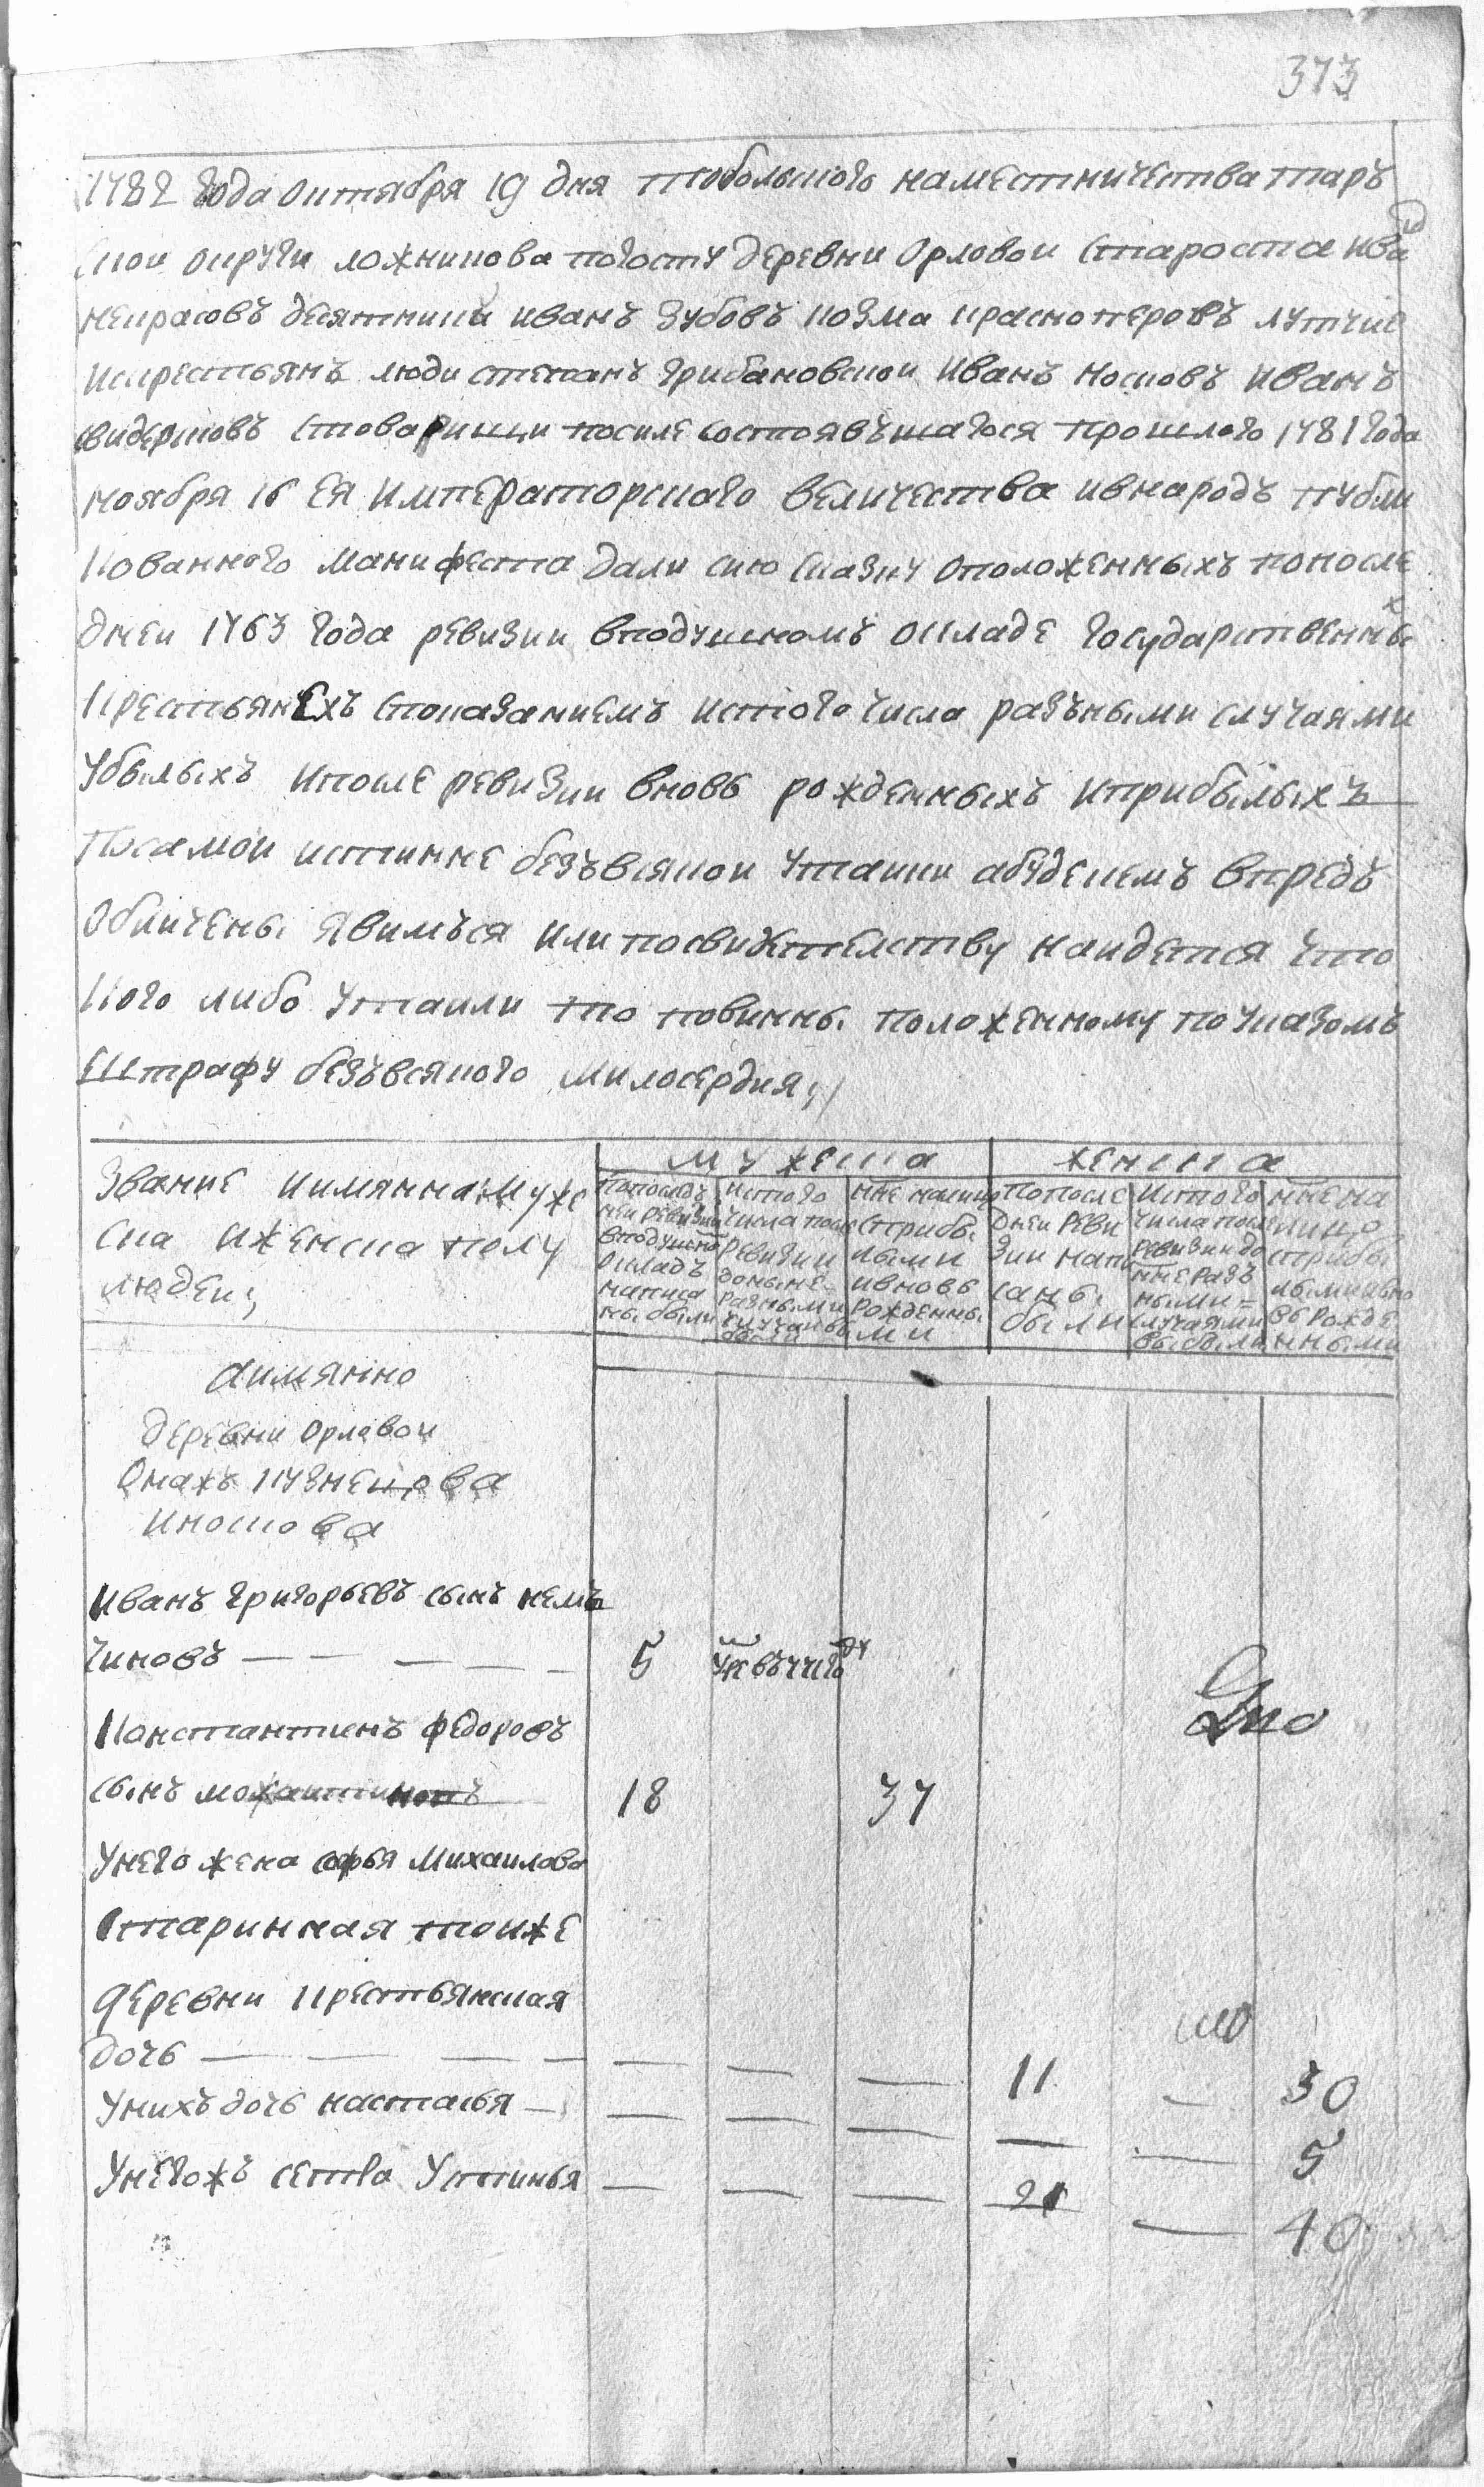 373
1782 года октября 19 дня тобольского наместничества тар
ской округи ложникова погосту деревни Орловой староста иванъ
некрасовъ десятники иванъ Зубовъ козма красноперовъ лутчие
искрестьянъ люди степанъ грибановской Иванъ носковъ иванъ
стоварищи посиле состоявъшагося прошлого 1781 года
ноября 16 Ея Императорскаго величества ивнародъ публи
кованного манифеста дали сию скаску оположенныхъ попосле
дней 1763 года ревизии вподушномъ окладе государственныхъ
крестьянехъ споказаниемъ истого числа разъными случаями
убылыхъ ипосле ревизии вновь рожденныхъ иприбылыхъ
Посамой истинне безъвсякой утайки абуде кемъ впредь
обличены явимъся или посвидетелству найдется что
кого либо утаили то повинны положенному поуказомъ
штрафу безъвсякого милосердия
мужеска женска
Звание иимянна муже
ска иженска полу
людей
Попослѣд
ней ревизии
вподушно
окладъ
написа
ны были
истого
числа после
ревизии
доныне
разными
случаи вы
были
нне налицо
сприбы
лыми
ивновь
рожденны
ми
Попосле
дней реви
зии напи
саны
были
Истого
числа после
ревизии до
нне разъ
ными
случаями
выбыли
нне на
лицо
сприбы
лыми ивно
вь рожде
нными
аимянно
деревни Орловой
Онажъ кузнецова
иноскова
Иванъ григорьевъ сынъ немъ
чиновъ 5
Константинъ федоровъ
сынъ 18 37
Унего жена софья Михаилова
старинная тойже
деревни крестьянская
дочь 11 30
Унихъ дочь настасья 5
Унегожъ сестра Устинья 21 40